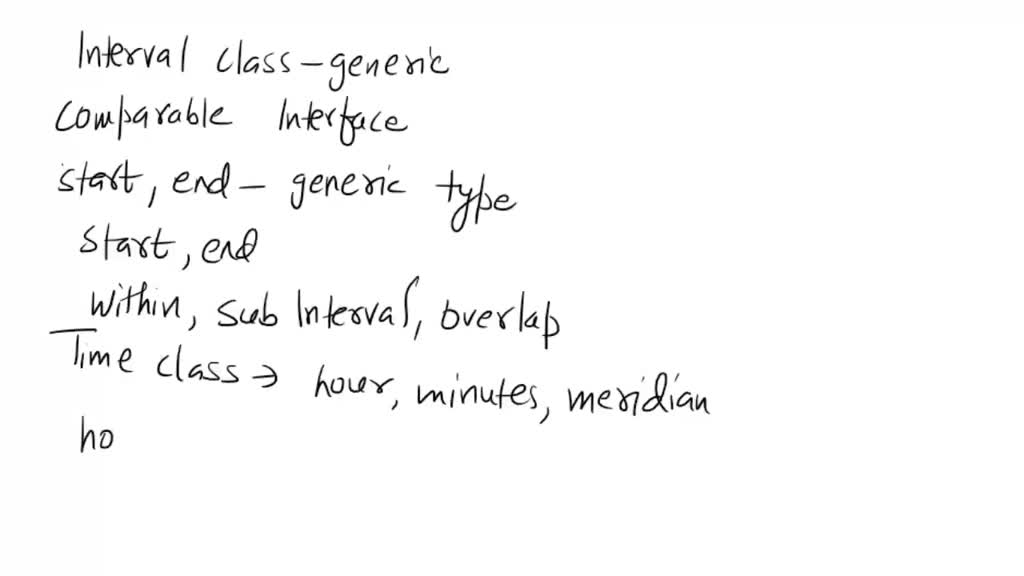 Interval class - generic
Comparable Interface
start, end - generic type
start, end
Within, sub Interval, overlap
Time class → hour, minutes, meridian
ho